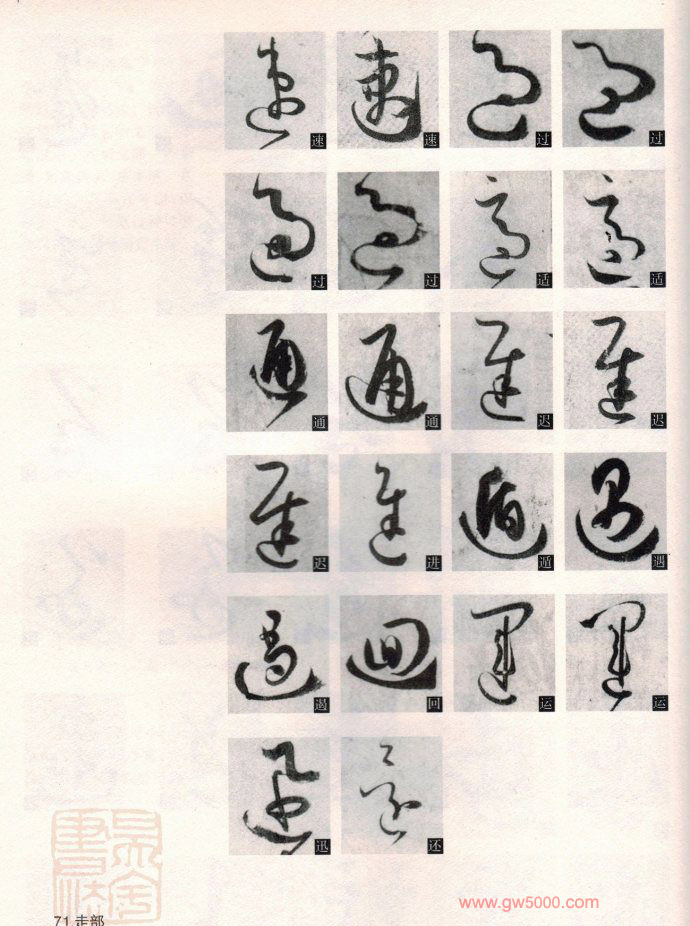 速 速 过 过
过 过 适 适
通 通 迟 迟
迟 进 遁 遇
遏 回 运 运
迅 还
www.gw5000.com
71.走部